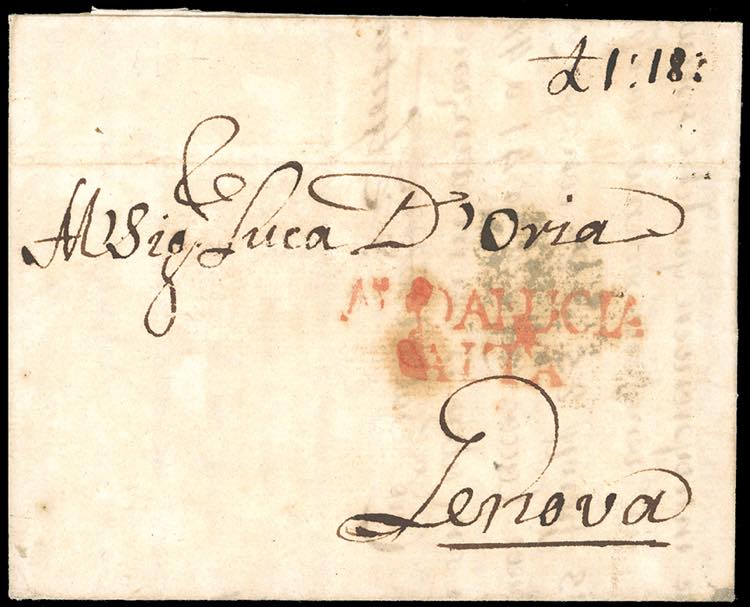 £ 1:18:
Al Sig. Luca D'Oria
ANDALUCIA
ALTA
Genova